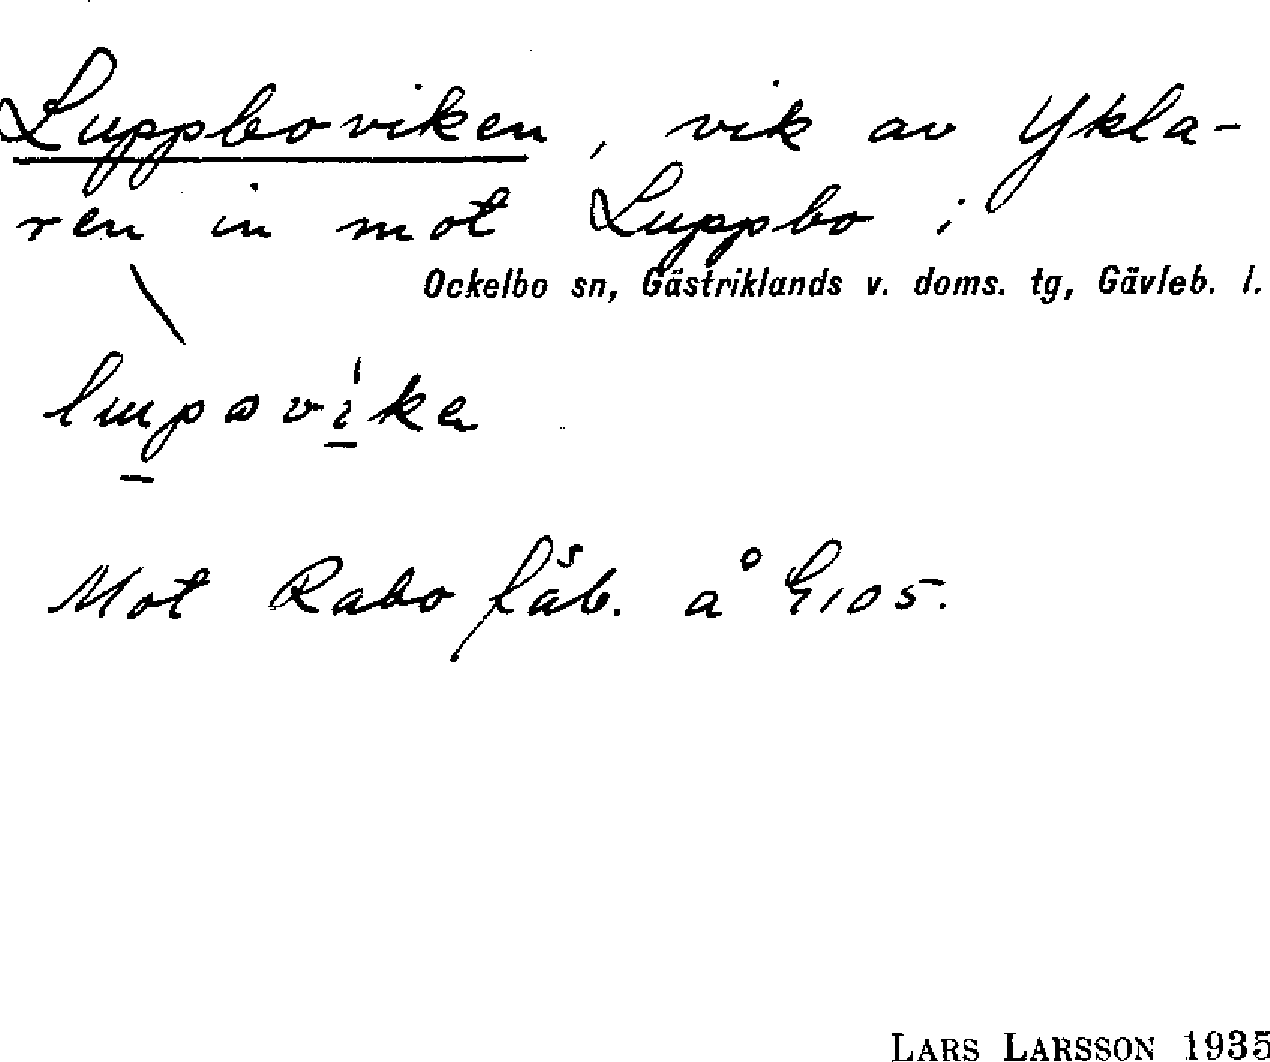 Luppboviken, vik av Ykla-
ren in mot Luppbo i
Ockelbo sn, Gästriklands v. doms. tg, Gävleb. l.
Mot Rabo fäb. å G105.
LARS LARSSON 1935